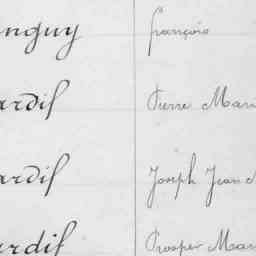 nguy françois
ardif Pierre Mari
ardif Joseph Jean M
ardif Prosper Mari